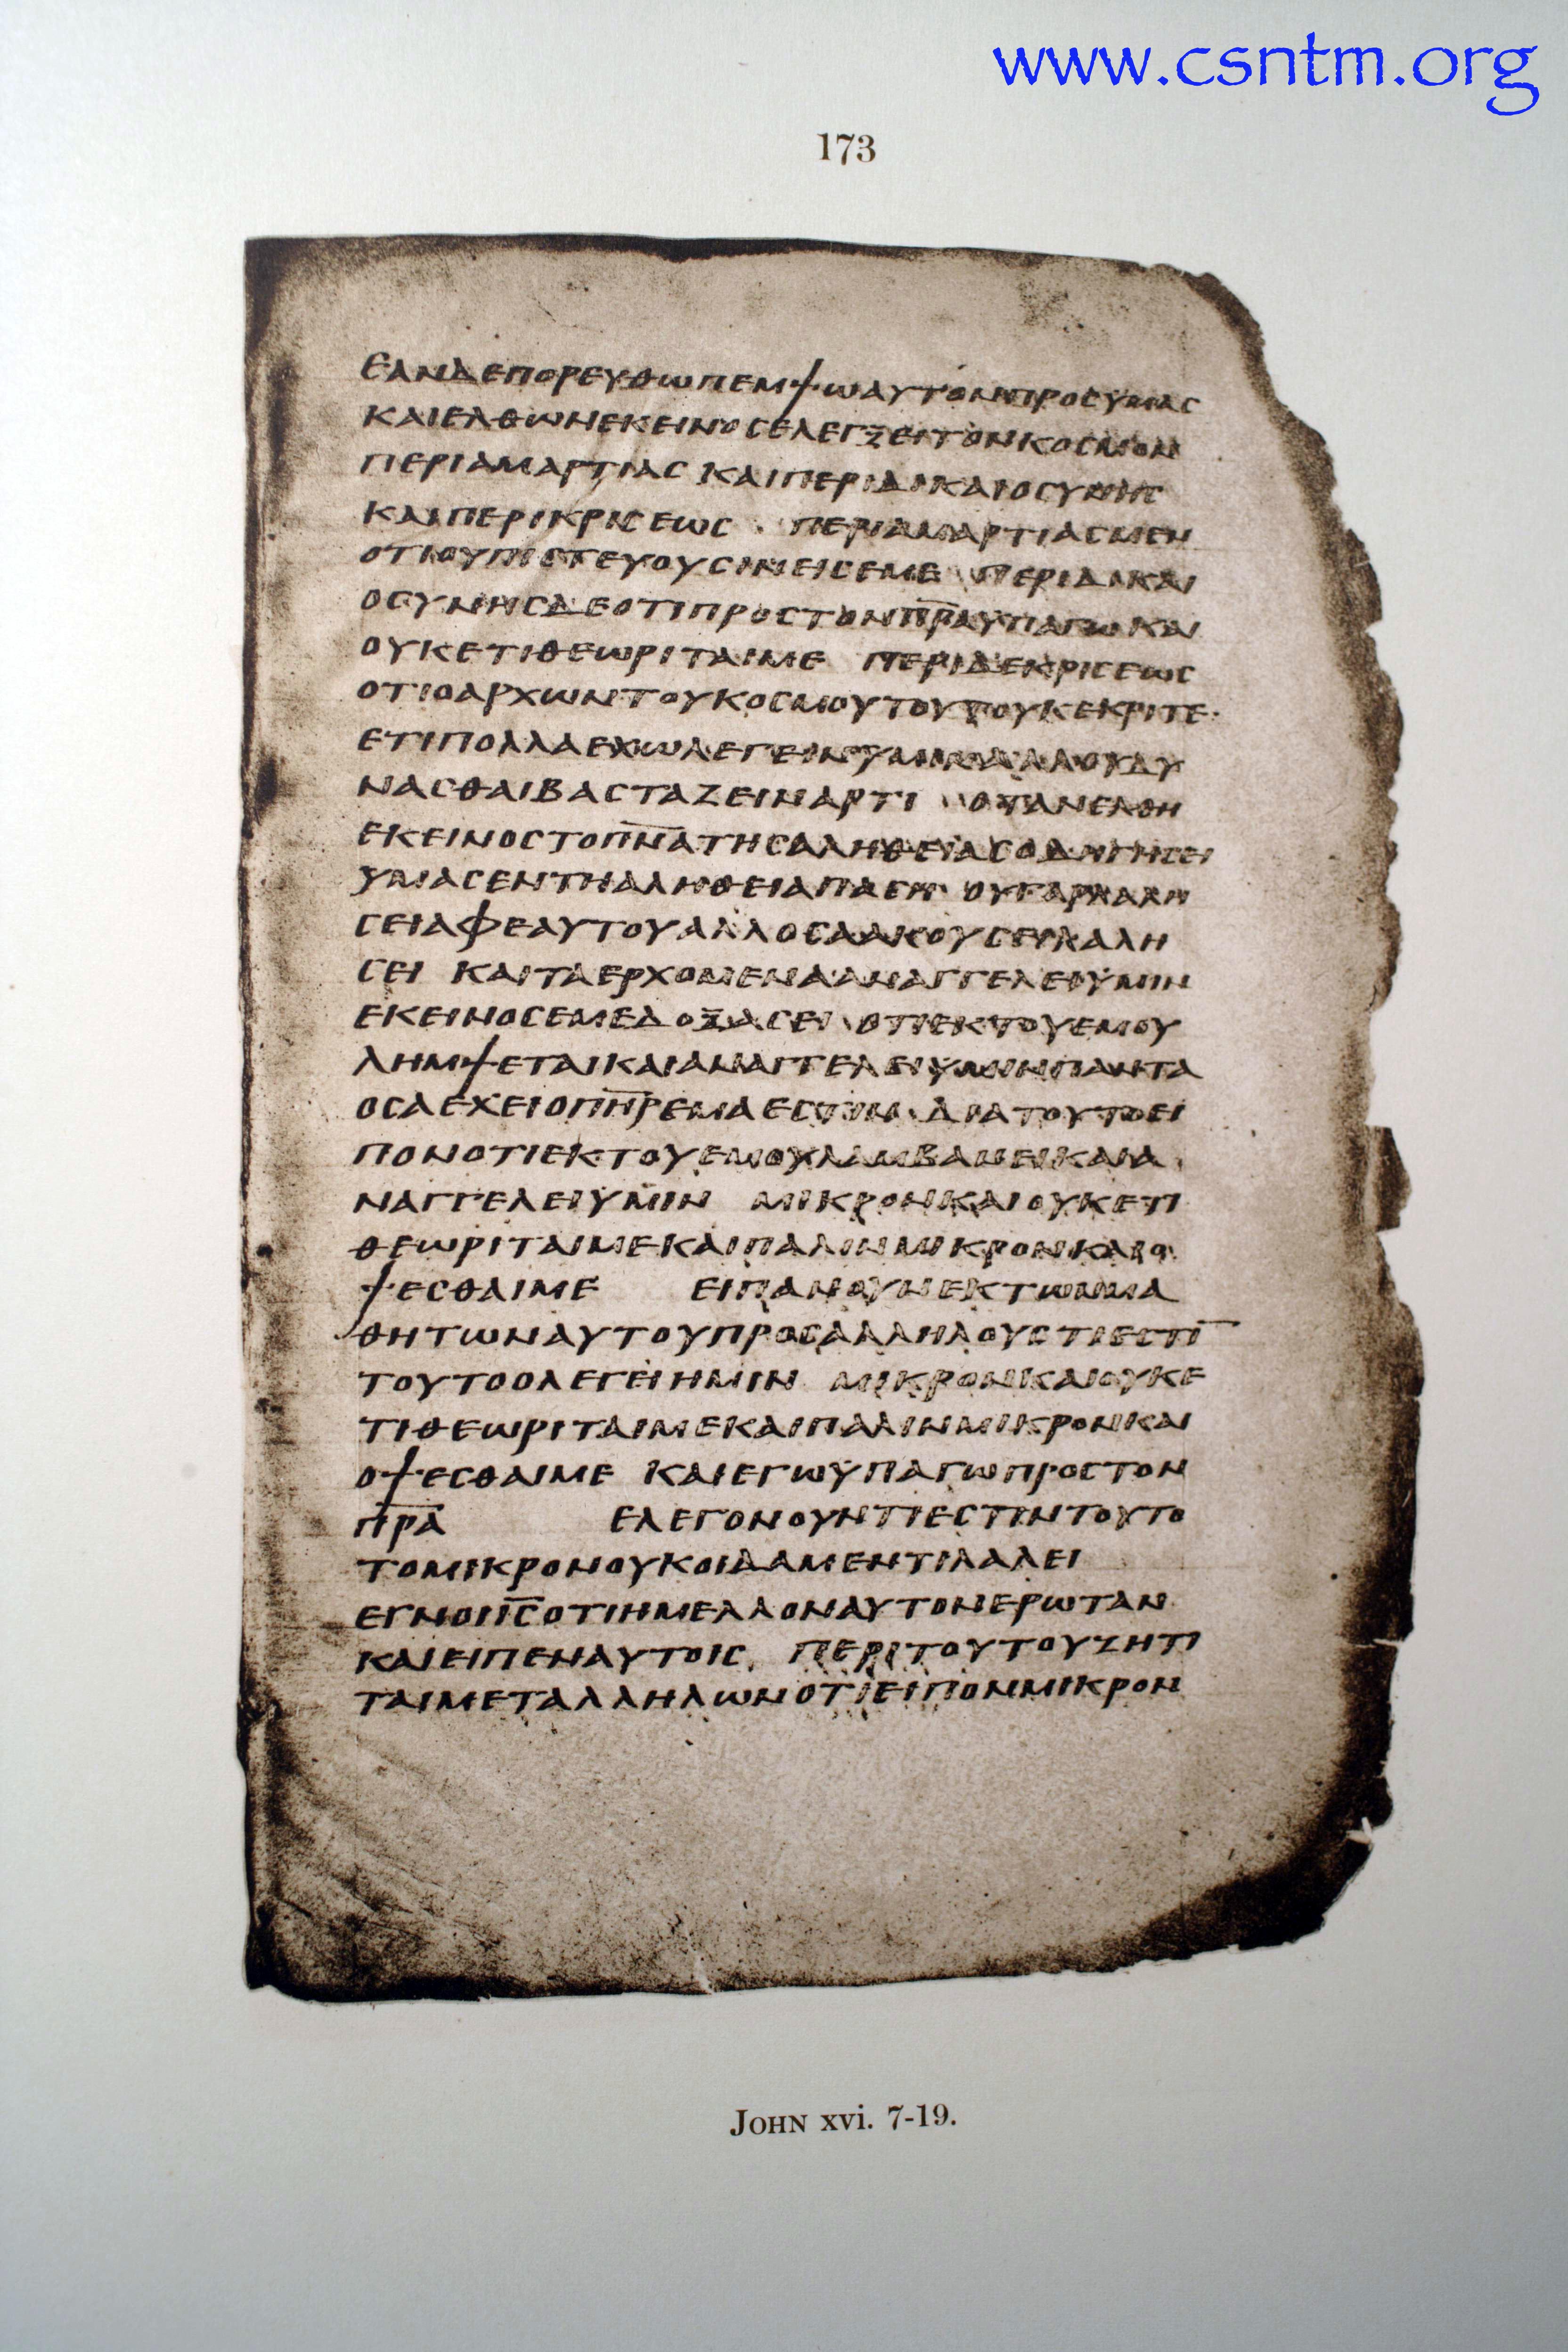 www.csntm.org
173
ΕΑΝΔΕΠΟΡΕΥΘΩΠΕΜΨΩΑΥΤΟΝΠΡΟСΥΜΑС
ΚΑΙΕΛΘΩΝΕΚΕΙΝΟСΕΛΕΓΞΕΙΤΟΝΚΟСΜΟΝ
ΠΕΡΙΑΜΑΡΤΙΑС ΚΑΙΠΕΡΙΔΙΚΑΙΟСΥΝΗС
ΚΑΙΠΕΡΙΚΡΙСΕΩС · ΠΕΡΙΑΜΑΡΤΙΑСΜΕΝ
ΟΤΙΟΥΠΙСΤΕΥΟΥСΙΝΕΙСΕΜΕ ΠΕΡΙΔΙΚΑΙ
ΟСΥΝΗСΔΕΟΤΙΠΡΟСΤΟΝΠ̅Ρ̅Α̅ΥΠΑΓΩΚΑΙ
ΟΥΚΕΤΙΘΕΩΡΙΤΑΙΜΕ ΠΕΡΙΔΕΚΡΙСΕΩС
ΟΤΙΟΑΡΧΩΝΤΟΥΚΟСΜΟΥΤΟΥΤΟΥΚΕΚΡΙΤΕ·
ΕΤΙΠΟΛΛΑΕΧΩΛΕΓΕΙΝΫΜΙΝΑΛΛΟΥΔΥ
ΝΑСΘΑΙΒΑСΤΑΖΕΙΝΑΡΤΙ ΟΤΑΝΕΛΘΗ
ΕΚΕΙΝΟСΤΟΠ̅Ν̅Α̅ΤΗСΑΛΗΘΕΙΑСΟΔΗΓΗСΕΙ
ΥΜΑСΕΝΤΗΑΛΗΘΕΙΑΠΑСΗ ΟΥΓΑΡΛΑΛΗ
СΕΙΑΦΕΑΥΤΟΥΑΛΛΟСΑΑΚΟΥСΕΙΛΑΛΗ
СΕΙ ΚΑΙΤΑΕΡΧΟΜΕΝΑΑΝΑΓΓΕΛΕΙΫΜΙΝ
ΕΚΕΙΝΟСΕΜΕΔΟΞΑСΕΙ ΟΤΙΕΚΤΟΥΕΜΟΥ
ΛΗΜΨΕΤΑΙΚΑΙΑΝΑΓΓΕΛΕΙΫΜΙΝΠΑΝΤΑ
ΟСΑΕΧΕΙΟΠ̅Η̅Ρ̅ΕΜΑΕСΤΙΝ ΔΙΑΤΟΥΤΟΕΙ
ΠΟΝΟΤΙΕΚΤΟΥΕΜΟΥΛΑΜΒΑΝΕΙΚΑΙΑ
ΝΑΓΓΕΛΕΙΫΜΙΝ ΜΙΚΡΟΝΚΑΙΟΥΚΕΤΙ
ΘΕΩΡΙΤΑΙΜΕΚΑΙΠΑΛΙΝΜΙΚΡΟΝΚΑΙΟ
ΨΕСΘΑΙΜΕ ΕΙΠΑΝΟΥΝΕΚΤΩΝΜΑ
ΘΗΤΩΝΑΥΤΟΥΠΡΟСΑΛΛΗΛΟΥСΤΙΕСΤΙ̅
ΤΟΥΤΟΟΛΕΓΕΙΗΜΙΝ ΜΙΚΡΟΝΚΑΙΟΥΚΕ
ΤΙΘΕΩΡΙΤΑΙΜΕΚΑΙΠΑΛΙΝΜΙΚΡΟΝΚΑΙ
ΟΨΕСΘΑΙΜΕ ΚΑΙΕΓΩΫΠΑΓΩΠΡΟСΤΟΝ
Π̅Ρ̅Α̅ ΕΛΕΓΟΝΟΥΝΤΙΕСΤΙΝΤΟΥΤΟ
ΤΟΜΙΚΡΟΝΟΥΚΟΙΔΑΜΕΝΤΙΛΑΛΕΙ
ΕΓΝΟΙ̅С̅ΟΤΙΗΜΕΛΛΟΝΑΥΤΟΝΕΡΩΤΑΝ
ΚΑΙΕΙΠΕΝΑΥΤΟΙС ΠΕΡΙΤΟΥΤΟΥΖΗΤΙ
ΤΑΙΜΕΤΑΛΛΗΛΩΝΟΤΙΕΙΠΟΝΜΙΚΡΟΝ
JOHN xvi. 7-19.